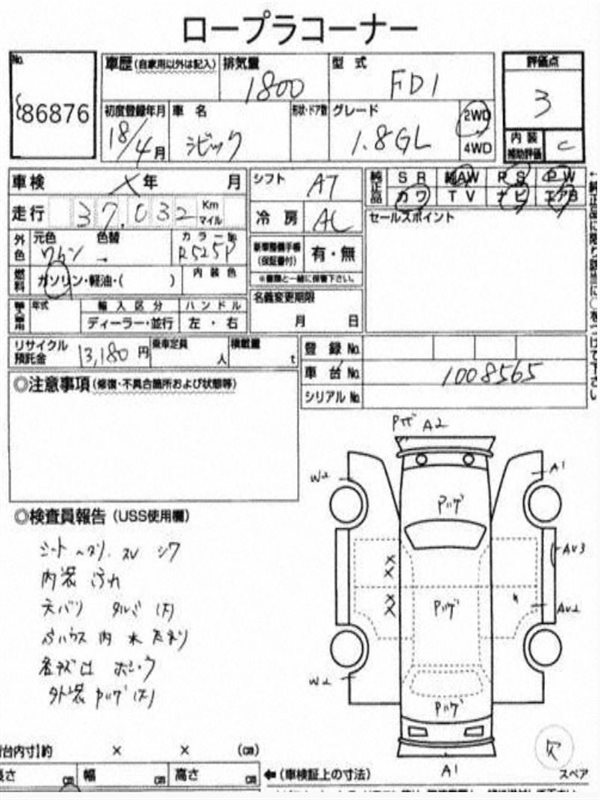 ロープラコーナー
No.
86876
車歴 (自家用以外は記入)
排気量
1800
型式
FD1
評価点
3
初度登録年月
18/4月
車名
シビック
形状・ドア数
グレード
1.8GL
2WD
4WD
内装
補助評価
C
車検
年 月
シフト
AT
純正品
SR AW PS PW
カワ TV ナビ エアB
走行
37,032
Km
マイル
冷房
AC
セールスポイント
外色
元色
ワイン
色替
→
カラーNo.
R525P
新車整備手帳
(保証書付)
有・無
※書類と一緒に保管下さい。
燃料
ガソリン・軽油・( )
内装色
年式
輸入区分
ハンドル
ディーラー・並行
左・右
名義変更期限
月 日
リサイクル
預託金
13,180円
乗車定員
人
積載量
t
登録No.
車台No.
1008565
シリアルNo.
◎注意事項 (修復・不具合箇所および状態等)
◎検査員報告 (USS使用欄)
シート ヘタリ スレ シワ
内装 汚れ
天バリ タルミ (大)
内 水
外装 Pハゲ (大)
Pハゲ A2
W2
A1
Pハゲ
AU3
×
×
×
×
Pハゲ
AU2
W2
Pハゲ
A1
欠
スペア
荷台内寸約 × × (cm)
長さ cm 幅 cm 高さ cm
← (車検証上の寸法)